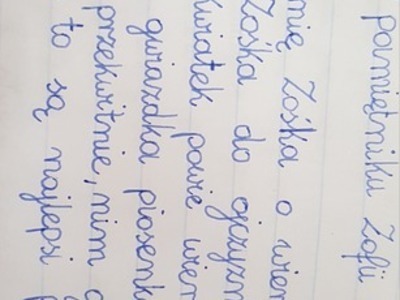 pamiętniku Zofii
nię Zośka o wier
Zośka do ojczyzn
kwiatek powie wier
gwiazdka piosenk
przekwitnie, nim
to są najlepsi